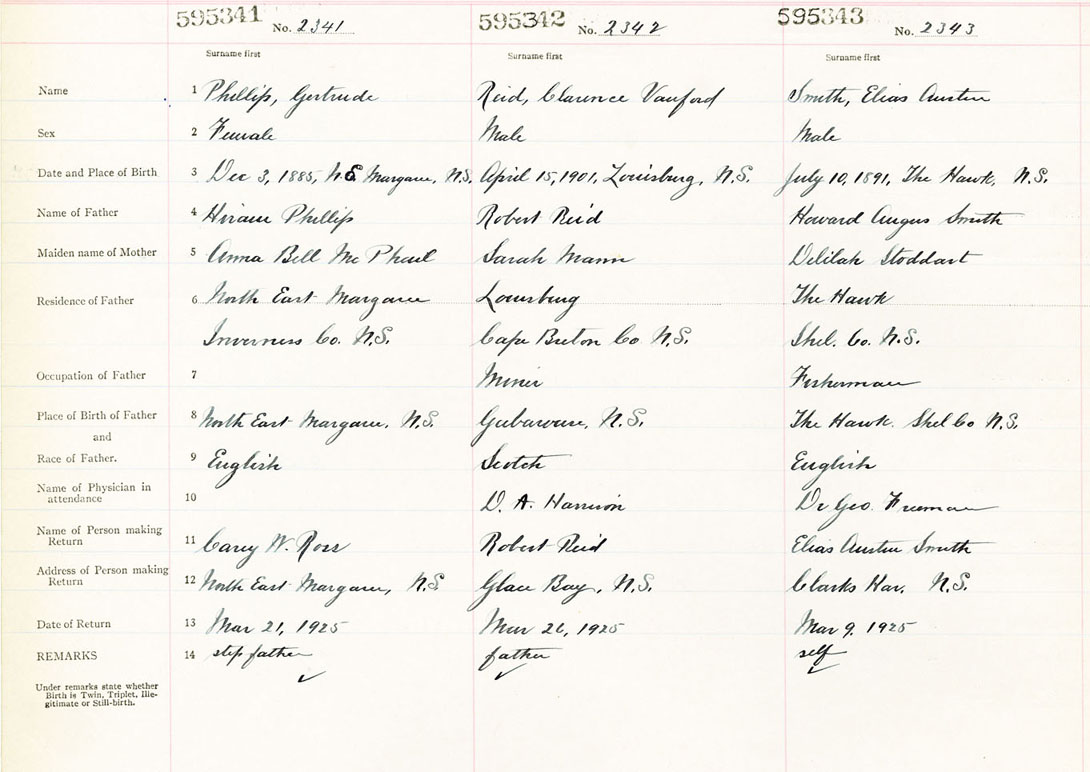 595341 No. 2341 595342 No. 2342 595343 No. 2343
Surname first Surname first Surname first
Name 1 Phillips, Gertrude Reid, Clarence Vanford Smith, Elias Austin
Sex 2 Female Male Male
Date and Place of Birth 3 Dec 3, 1885, N.E Margaree, N.S. April 15, 1901, Louisburg, N.S. July 10, 1891, The Hawk, N.S.
Name of Father 4 Hiram Phillips Robert Reid Howard Angus Smith
Maiden name of Mother 5 Anna Bell Mc Phail Sarah Mann Delilah Stoddart
Residence of Father 6 North East Margaree Louisburg The Hawk
Inverness Co. N.S. Cape Breton Co N.S. Shel. Co. N.S.
Occupation of Father 7 Miner Fisherman
Place of Birth of Father 8 North East Margaree, N.S. Gabarouse, N.S. The Hawk. Shel Co N.S.
and
Race of Father. 9 English Scotch English
Name of Physician in
attendance 10 D. A. Harrison Dr Geo. Freeman
Name of Person making
Return 11 Carey W. Ross Robert Reid Elias Austin Smith
Address of Person making
Return 12 North East Margaree, N.S. Glace Bay, N.S. Clarks Har. N.S.
Date of Return 13 Mar 21, 1925 Mar 26, 1925 Mar 9, 1925
REMARKS 14 step father father self
Under remarks state whether
Birth is Twin, Triplet, Ille-
gitimate or Still-birth.